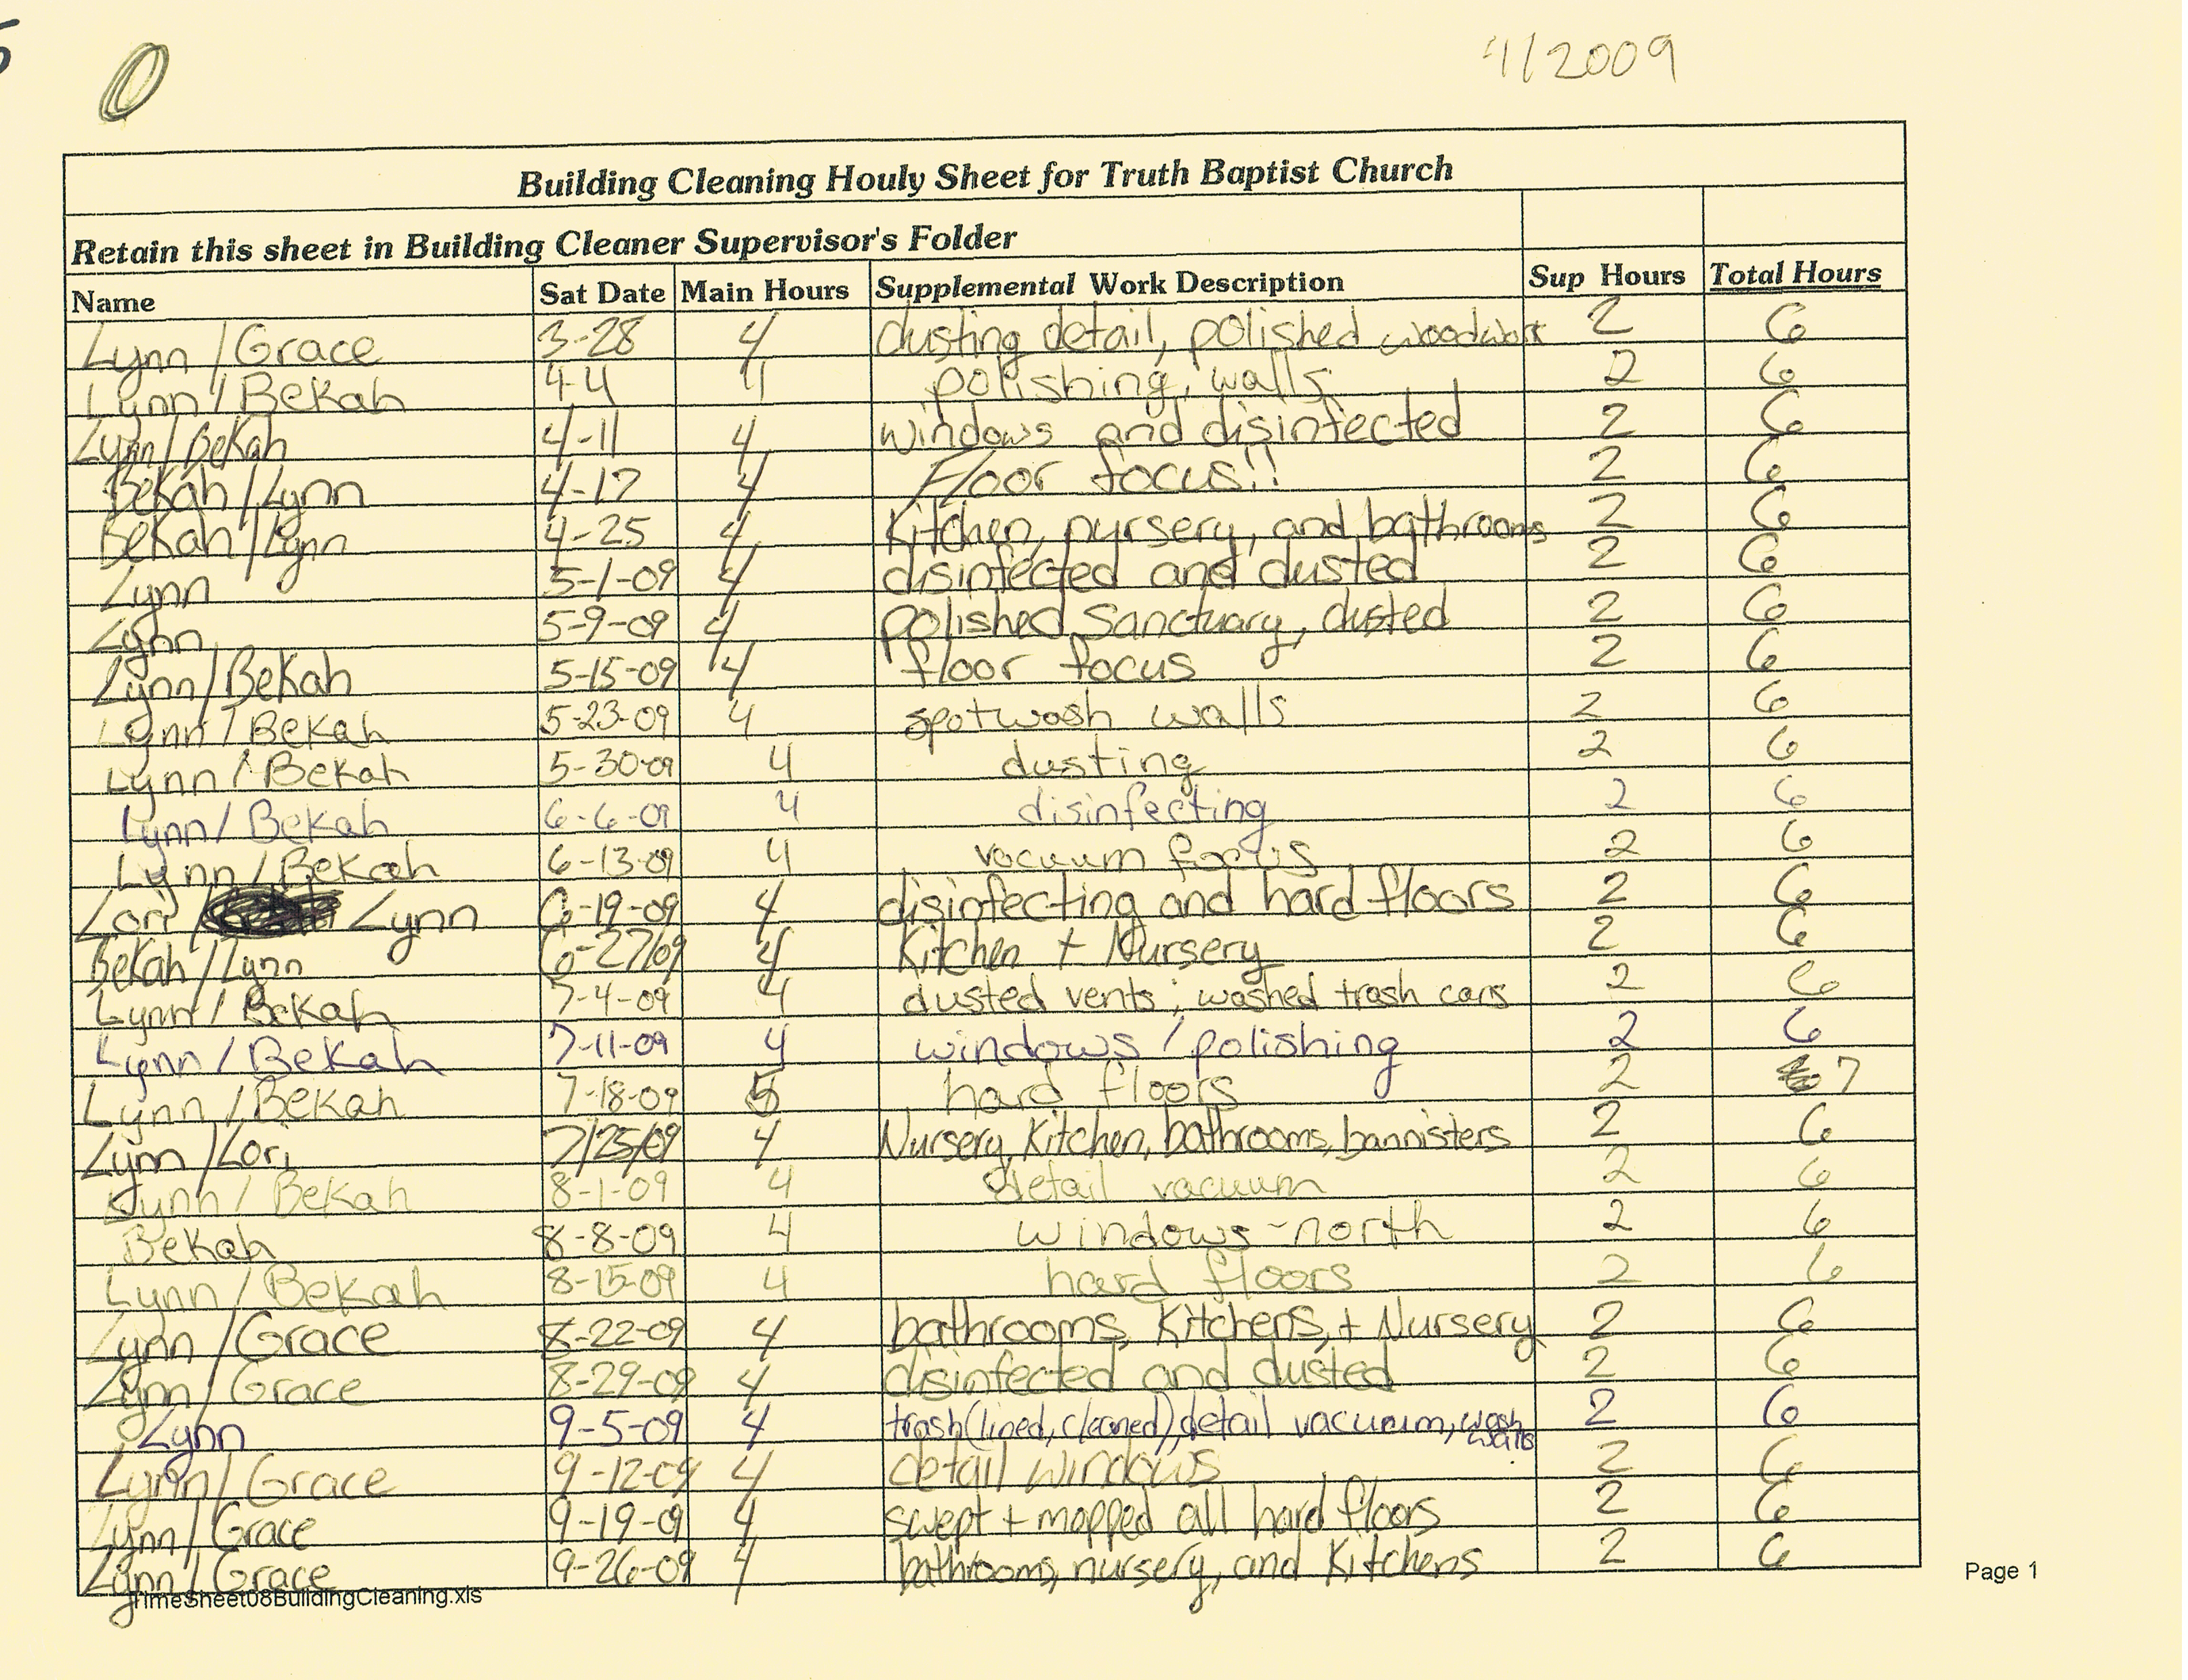 4/2009
Building Cleaning Houly Sheet for Truth Baptist Church
Retain this sheet in Building Cleaner Supervisor's Folder
Name Sat Date Main Hours Supplemental Work Description Sup Hours Total Hours
Lynn/Grace 3-28 4 dusting detail, polished woodwork 2 6
Lynn/Bekah 4-4 4 polishing, walls 2 6
Lynn/Bekah 4-11 4 windows and disinfected 2 6
Bekah/Lynn 4-17 4 Floor focus!! 2 6
Bekah/Lynn 4-25 4 Kitchen, nyrsery, and bathrooms 2 6
Lynn 5-1-09 4 disinfected and dusted 2 6
Lynn 5-9-09 4 polished Sanctuary, dusted 2 6
Lynn/Bekah 5-15-09 4 floor focus 2 6
Lynn/Bekah 5-23-09 4 spotwash walls 2 6
Lynn/Bekah 5-30-09 4 dusting 2 6
Lynn/Bekah 6-6-09 4 disinfecting 2 6
Lynn/Bekah 6-13-09 4 vacuum focus 2 6
Lori/ Lynn 6-19-09 4 disinfecting and hard floors 2 6
Bekah/Lynn 6-27/09 4 Kitchen + Nursery 2 6
Lynn/Bekah 7-4-09 4 dusted vents; washed trash cans 2 6
Lynn/Bekah 7-11-09 4 windows/polishing 2 6
Lynn/Bekah 7-18-09 5 hard floors 2 7
Lynn/Lori 7/25/09 4 Nursery, Kitchen, bathrooms, bannisters 2 6
Lynn/Bekah 8-1-09 4 detail vacuum 2 6
Bekah 8-8-09 4 windows-north 2 6
Lynn/Bekah 8-15-09 4 hard floors 2 6
Lynn/Grace 8-22-09 4 bathrooms, Kitchens, + Nursery 2 6
Lynn/Grace 8-29-09 4 disinfected and dusted 2 6
Lynn 9-5-09 4 trash(lined, cleaned), detail vacuum, wash walls 2 6
Lynn/Grace 9-12-09 4 detail windows 2 6
Lynn/Grace 9-19-09 4 swept + mopped all hard floors 2 6
Lynn/Grace 9-26-09 4 bathrooms, nursery, and Kitchens 2 6
TimeSheet08BuildingCleaning.xls
Page 1